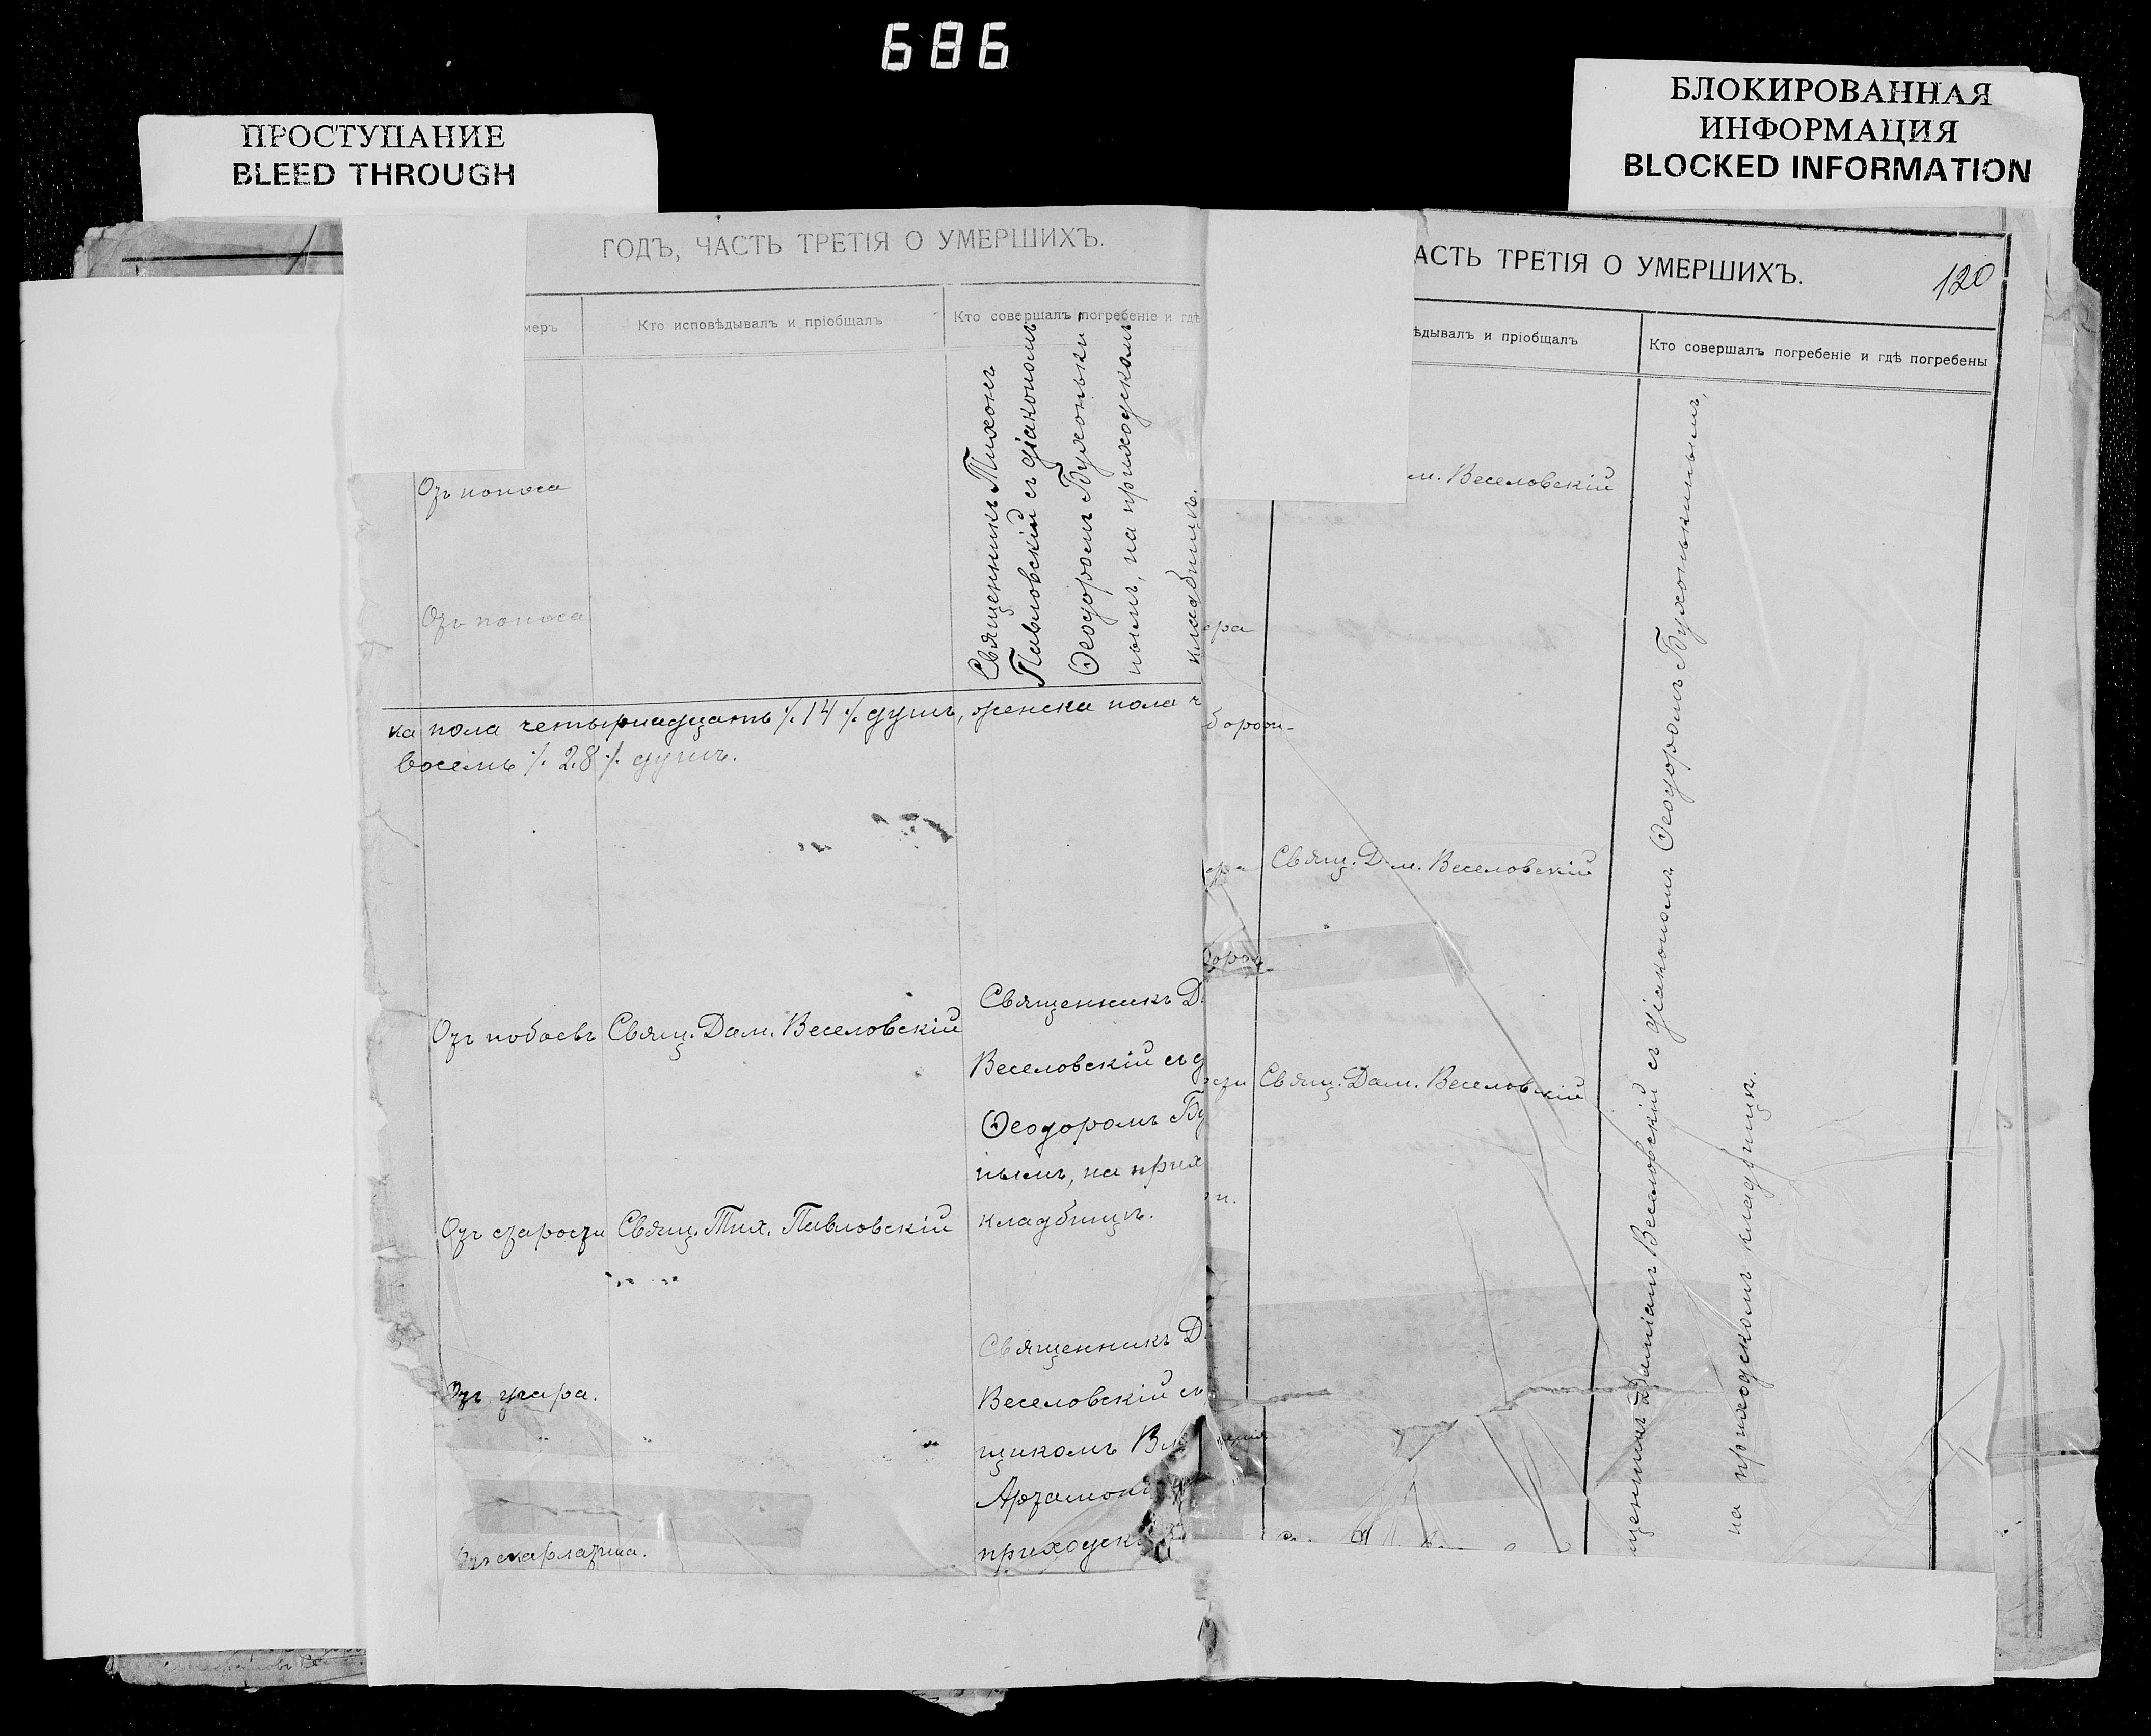 686
ПРОСТУПАНИЕ
BLEED THROUGH
БЛОКИРОВАННАЯ
ИНФОРМАЦИЯ
BLOCKED INFORMATION
ГОДЪ, ЧАСТЬ ТРЕТІЯ О УМЕРШИХЪ.
меръ
Кто исповѣдывалъ и пріобщалъ
Кто совершалъ погребеніе и гдѣ
Отъ поноса
Отъ поноса
Священникъ Тихонъ
Павловскій съ діакономъ
Ѳеодоромъ Бухоньки
нымъ, на приходскомъ
кладбищѣ.
ка пола четырнадцать ٪ 14 ٪ душъ, женска пола ч
восемь ٪ 28 ٪ душъ.
Отъ побоевъ
Свящ. Дам. Веселовскій
Священникъ Д
Веселовскій съ д
Ѳеодоромъ Бу
нымъ, на прих
кладбищѣ.
Отъ старости
Свящ. Тих. Павловскій
Отъ угара.
Священникъ Д
Веселовскій съ
щикомъ Вл
Артамон
приходск
Отъ скарлатина.
АСТЬ ТРЕТІЯ О УМЕРШИХЪ.
120
ѣдывалъ и пріобщалъ
Кто совершалъ погребеніе и гдѣ погребены
м. Веселовскій
ера
Свящ. Дам. Веселовскій
сти
Свящ. Дам. Веселовскій
щенникъ Даміанъ Веселовскій съ діакономъ Ѳеодоромъ Бухонькинымъ,
на приходскомъ кладбищѣ.